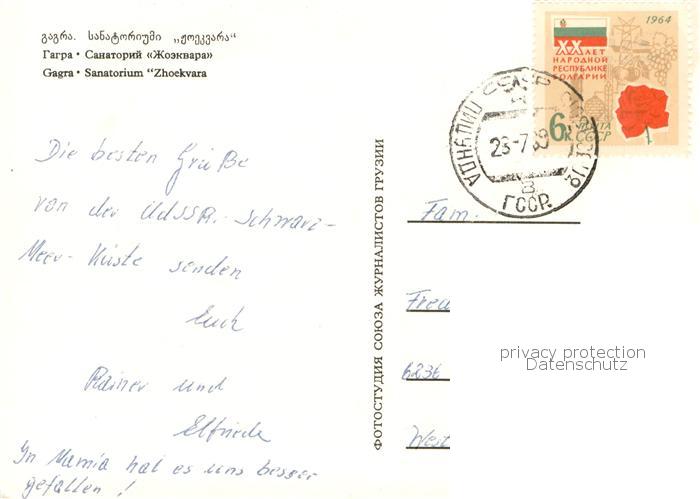 გაგრა. სანატორიუმი „ჟოეკვარა“
Гагра • Санаторий «Жоэквара»
Gagra • Sanatorium "Zhoekvara
1964
XX ЛЕТ
НАРОДНОЙ
РЕСПУБЛИКЕ
БОЛГАРИИ
6к ПОЧТА
СССР
СССР
В
ГССР
Die besten Grüße
von der UdSSR.-Schwarz-
Meer-Küste senden
Euch
Rainer und
Elfriede
In Mamia hat es uns besser
gefallen!
ФОТОСТУДИЯ СОЮЗА ЖУРНАЛИСТОВ ГРУЗИИ
Fam.
6236
West
privacy protection
Datenschutz